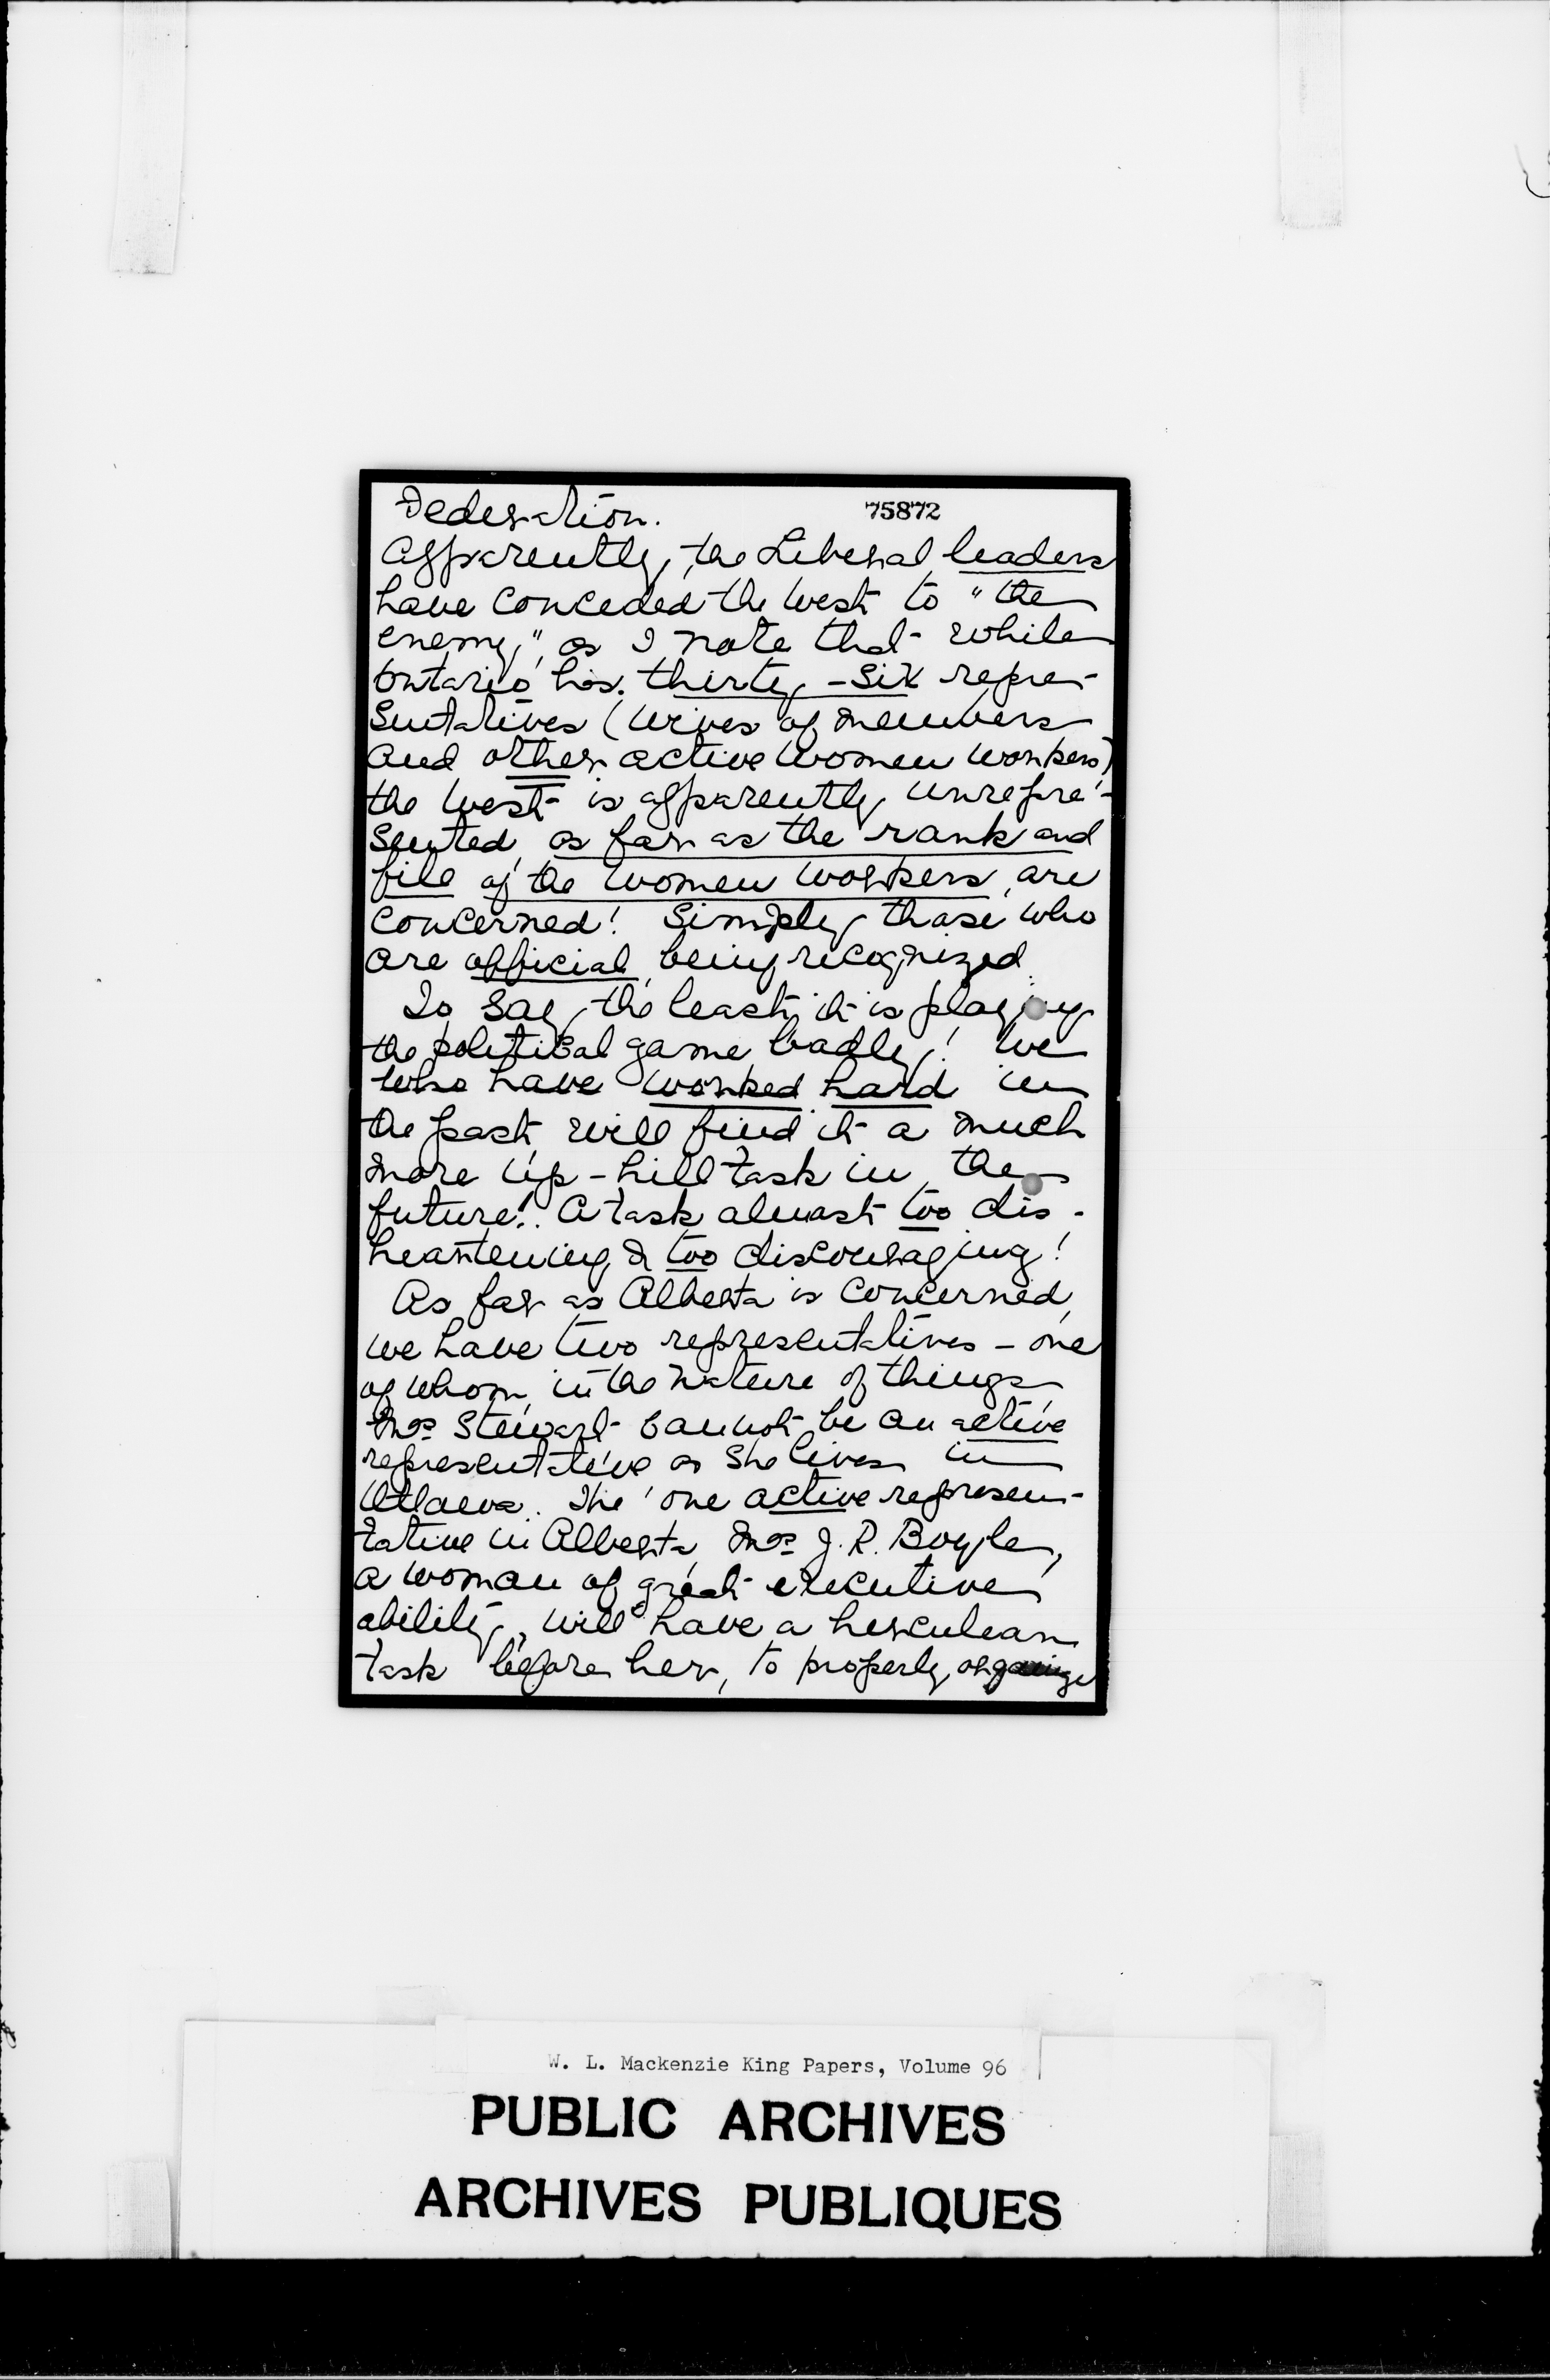 Federation.
75872
Apparently, the Liberal leaders
have conceded the West to "the
enemy," as I note that while
Ontario has thirty-six repre-
sentatives (wives of members
and other active women workers)
the West is apparently unrepre-
sented as far as the rank and
file of the women workers are
concerned! Simply those who
are official being recognized.
To say the least, it is playing
the political game badly! We
who have worked hard in
the past will find it a much
more up-hill task in the
future! A task almost too dis-
heartening & too discouraging!
As far as Alberta is concerned,
we have two representatives - one
of whom in the nature of things
Mrs Stewart cannot be an active
representative as she lives in
Ottawa. The one active represen-
tative in Alberta, Mrs J. R. Boyle,
a woman of great executive
ability, will have a herculean
task before her, to properly organize
W. L. Mackenzie King Papers, Volume 96
PUBLIC ARCHIVES
ARCHIVES PUBLIQUES